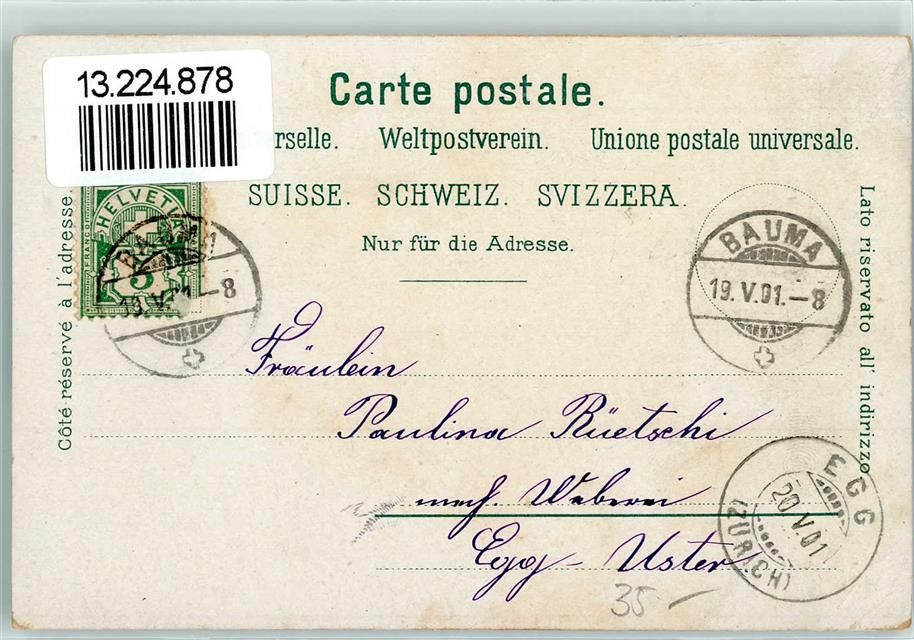 13.224.878
Carte postale.
rselle. Weltpostverein. Unione postale universale.
SUISSE. SCHWEIZ. SVIZZERA.
Nur für die Adresse.
Côté réservé à l'adresse
Lato riservato all' indirizzo
FRANCO
HELVETIA
5
BAUMA
19.V.01.-8
BAUMA
19.V.01.-8
Fräulein
Paulina Rüetschi
mech. Weberei
Egg - Uster
EGG
20.V.01
(ZÜRICH)
35 -